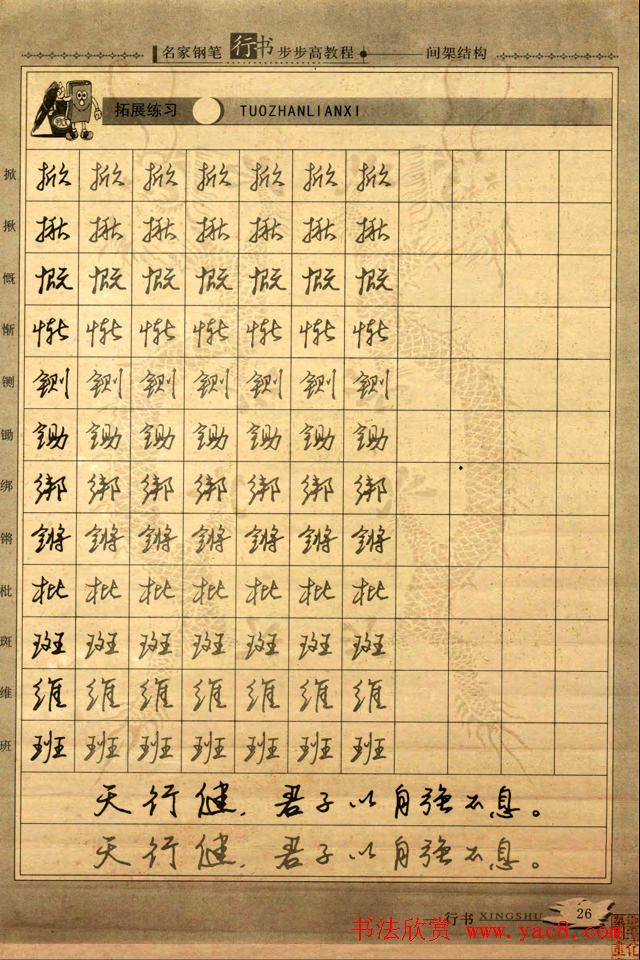 名家钢笔行书步步高教程 间架结构
拓展练习 TUOZHANLIANXI
掀 掀 掀 掀 掀 掀 掀 掀
揪 揪 揪 揪 揪 揪 揪 揪
慨 慨 慨 慨 慨 慨 慨 慨
惭 惭 惭 惭 惭 惭 惭 惭
铡 铡 铡 铡 铡 铡 铡 铡
锄 锄 锄 锄 锄 锄 锄 锄
绑 绑 绑 绑 绑 绑 绑 绑
锵 锵 锵 锵 锵 锵 锵 锵
枇 枇 枇 枇 枇 枇 枇 枇
斑 斑 斑 斑 斑 斑 斑 斑
维 维 维 维 维 维 维 维
班 班 班 班 班 班 班 班
天行健，君子以自强不息。
天行健，君子以自强不息。
行书 XINGSHU 26
书法欣赏 www.yac8.com